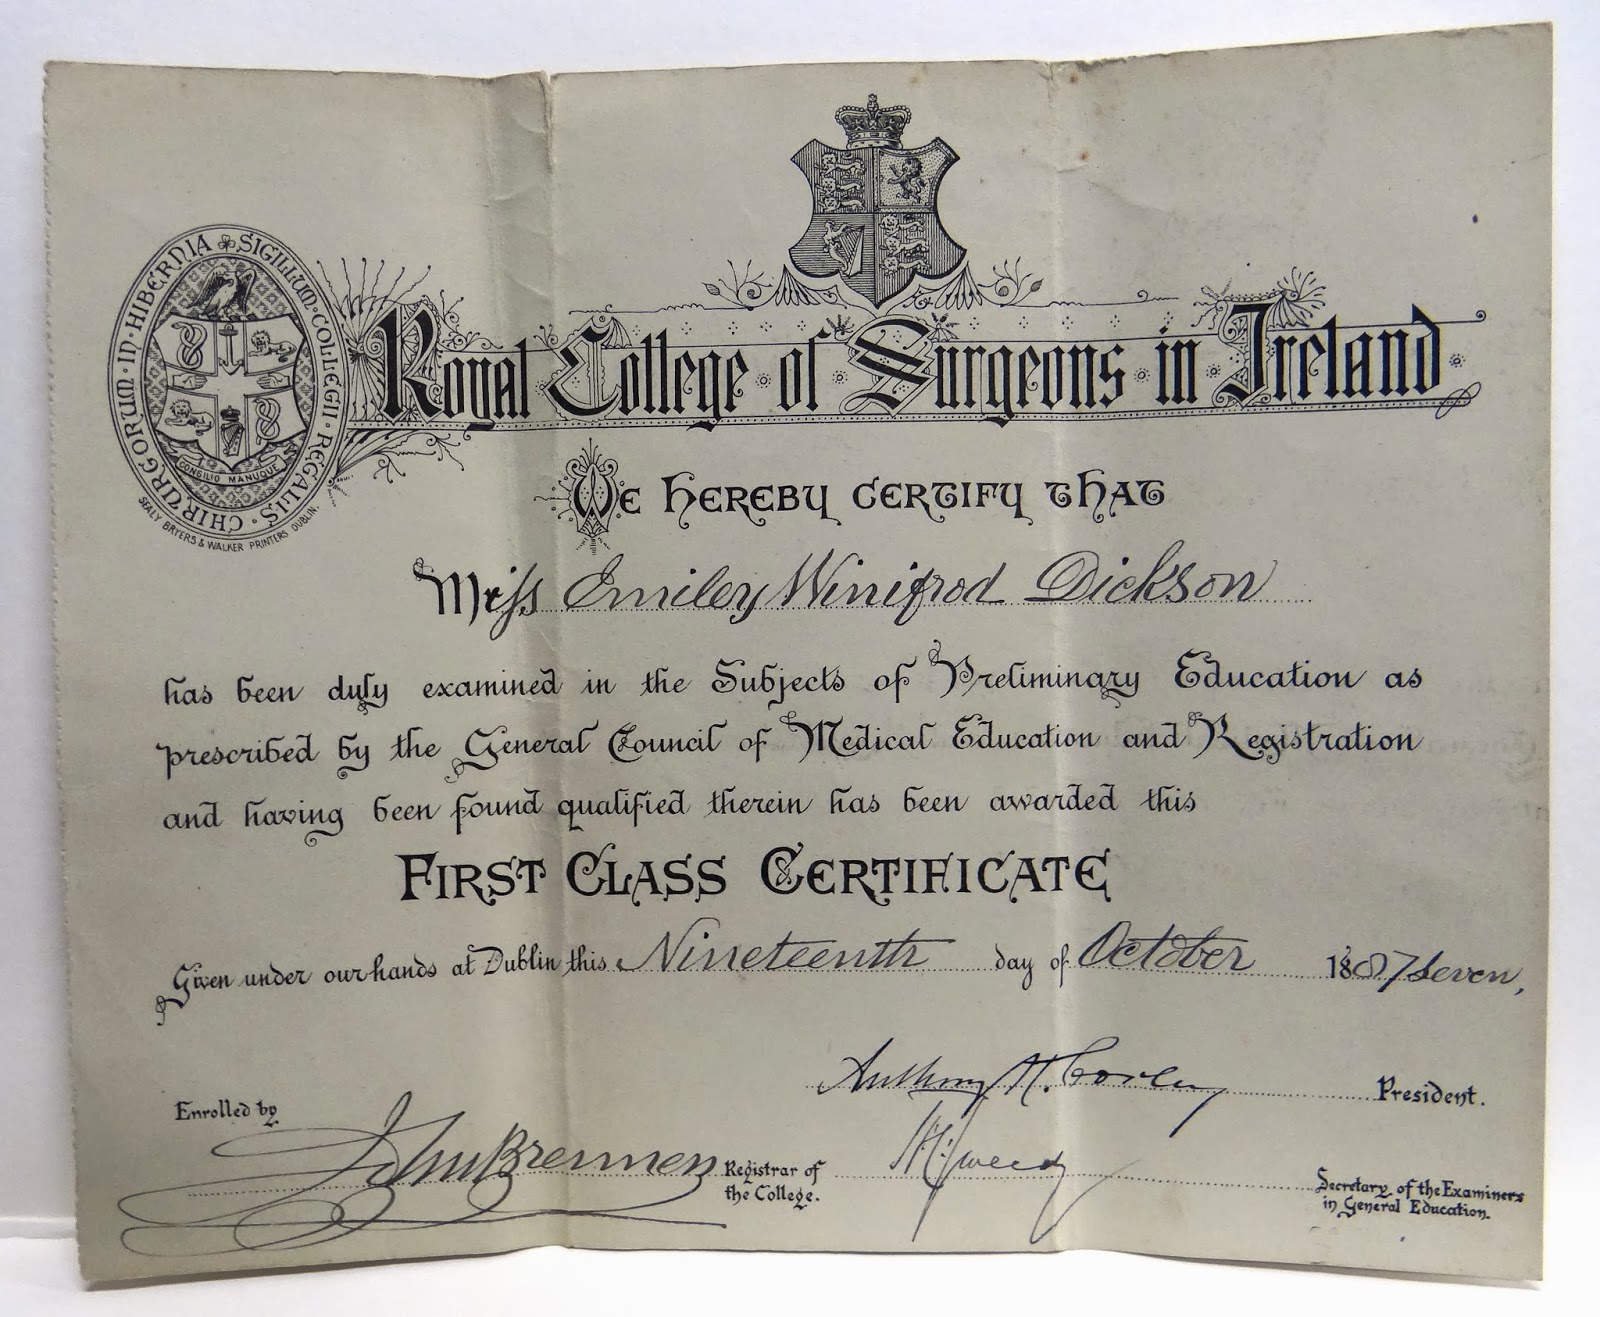 SIGILLUM · COLLEGII · REGALIS · CHIRURGORUM · IN · HIBERNIA
CONSILIO MANUQUE
SEALY BRYERS & WALKER PRINTERS DUBLIN.
Royal College of Surgeons in Ireland
We hereby certify that
Miss Emiley Winifrod Dickson
has been duly examined in the Subjects of Preliminary Education as
prescribed by the General Council of Medical Education and Registration
and having been found qualified therein has been awarded this
First Class Certificate
Given under our hands at Dublin this Nineteenth day of October 1887 Seven,
Anthony H. Corley President.
Enrolled by
John Brennen Registrar of
the College.
Secretary of the Examiners
in General Education.